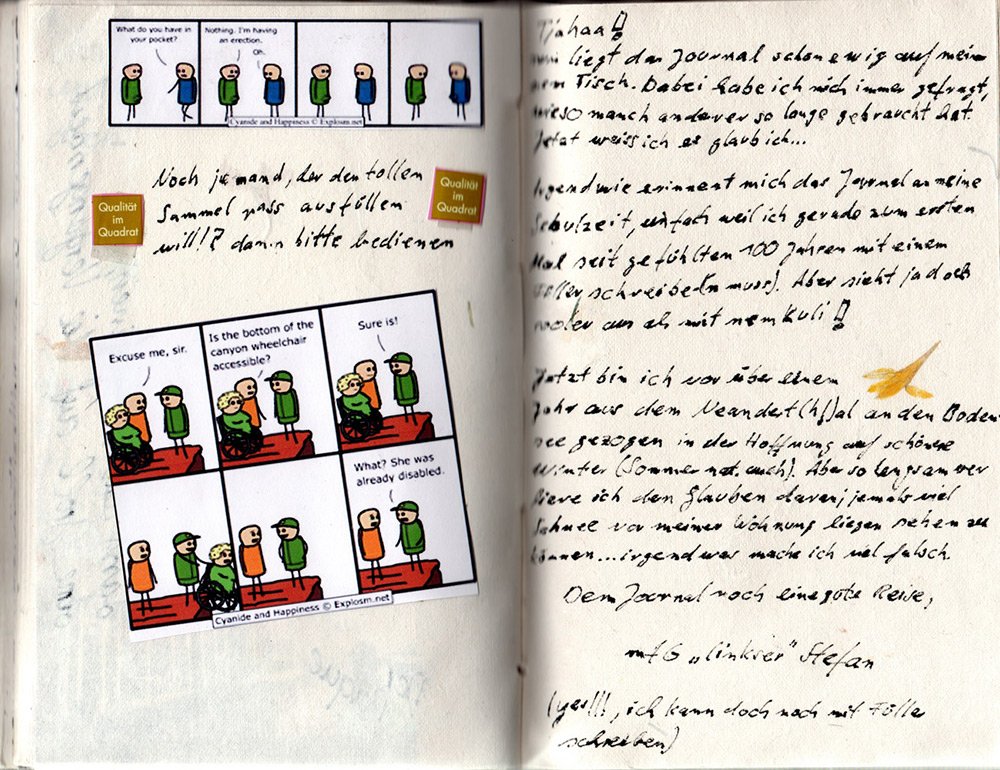 What do you have in
your pocket?
Nothing. I'm having
an erection.
Oh.
Cyanide and Happiness © Explosm.net
Noch jemand, der den tollen
Sammelpass ausfüllen
will!? dann bitte bedienen
Qualität
im
Quadrat
Qualität
im
Quadrat
Excuse me, sir.
Is the bottom of the
canyon wheelchair
accessible?
Sure is!
What? She was
already disabled.
Cyanide and Happiness © Explosm.net
Tjahaa!
liegt das Journal schon ewig auf mein
em Tisch. Dabei habe ich mich immer gefragt,
wieso manch anderer so lange gebraucht hat.
Jetzt weiss ich es glaub ich...
Irgendwie erinnert mich das Journal an meine
Schulzeit, einfach weil ich gerade zum ersten
Mal seit gefühlten 100 Jahren mit einem
Füller schreibe(n muss). Aber sieht ja doch
cooler aus als mit nem Kuli!
Jetzt bin ich vor über einem
Jahr aus dem Neandert(h)al an den Boden
see gezogen in der Hoffnung auf schönere
Winter (Sommer nat. auch). Aber so langsam ver
liere ich den Glauben daran, jemals viel
Schnee vor meiner Wohnung liegen sehen zu
können...irgendwas mache ich viel falsch.
Dem Journal noch eine gute Reise,
mfG „linkser" Stefan
(yes!!!, ich kann doch noch mit Fülle
schreiben)